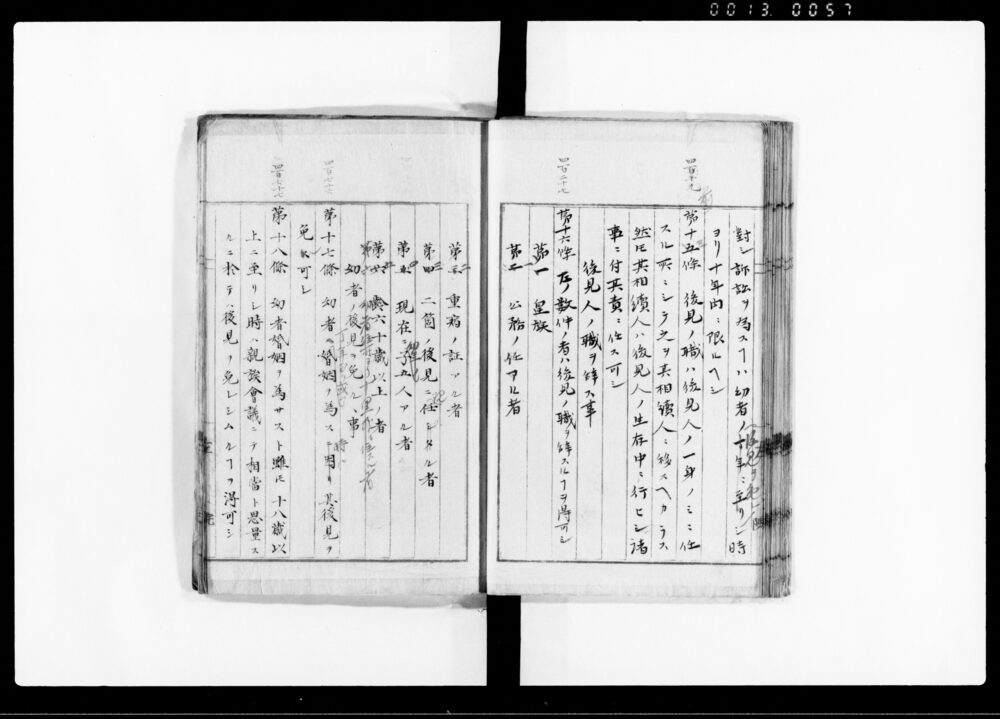 0013 0057
四百十九
對シ訴訟ヲ為スヿハ幼者ノ丁年ニ至リシ時
ヨリ十年内ニ限ルヘシ
第十五條 後見ノ職ハ後見人ノ一身ノミニ任
スル所ニシテ之ヲ其相續人ニ移スヘカラス
然𪜈其相續人ハ後見人ノ生存中ニ行ヒシ諸
事ニ付其責ニ任ス可シ
後見人ノ職ヲ辞スル事
四百二十七
第十六條 左ノ数件ノ者ハ後見ノ職ヲ辞スルヿヲ得可シ
第一 皇族
第二 公務ノ任アル者
第三 重病ノ証アル者
第四 二箇ノ後見ニ任シタル者
第五 現在ニ子五人アル者
第六 齡六十歳以上ノ者
幼者ノ後見ヲ免ルヽ事
第十七條 幼者ハ婚姻ヲ為スニ因リ其後見ヲ
免ル可シ
四百七十七
第十八條 幼者婚姻ヲ為サスト雖𪜈十八歳以
上ニ至リシ時ハ親族會議ニテ相當ト思量ス
ルニ於テハ後見ヲ免レシムルヿヲ得可シ